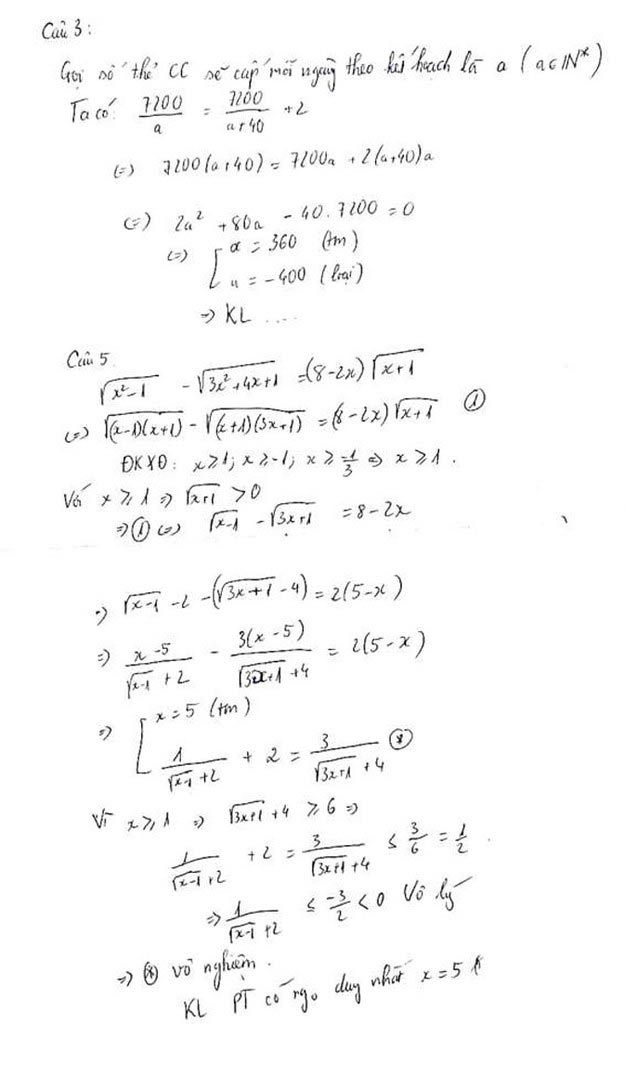 Câu 3:
Gọi số thẻ CC sẽ cấp mỗi ngày theo kế hoạch là a (a∈ℕ*)
Ta có: 7200/a = 7200/(a+40) + 2
(=) 7200(a+40) = 7200a + 2(a+40)a
(=) 2a² + 80a - 40.7200 = 0
(=) [ a = 360 (tm)
a = -400 (loại)
=> KL ....
Câu 5.
√(x²-1) - √(3x²+4x+1) = (8-2x)√(x+1)
(=) √((x-1)(x+1)) - √((x+1)(3x+1)) = (8-2x)√(x+1) ①
ĐKXĐ: x≥1; x≥-1; x≥ -1/3 => x≥1.
Với x≥1 => √(x+1) >0
=> ① (=) √(x-1) - √(3x+1) = 8-2x
=> √(x-1) -2 -(√(3x+1) -4) = 2(5-x)
=> (x-5)/(√(x-1) +2) - 3(x-5)/(√(3x+1) +4) = 2(5-x)
=> [ x=5 (tm)
1/(√(x-1) +2) + 2 = 3/(√(3x+1) +4) (*)
Vì x≥1 => √(3x+1) +4 ≥6 =>
1/(√(x-1) +2) + 2 = 3/(√(3x+1) +4) ≤ 3/6 = 1/2.
=> 1/(√(x-1) +2) ≤ -3/2 <0 Vô lý
=> (*) vô nghiệm.
KL PT có ngo duy nhất x=5